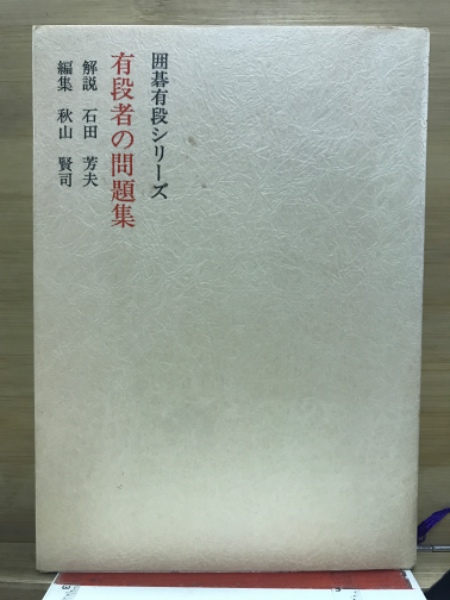 囲碁有段シリーズ
有段者の問題集
解説 石田 芳夫
編集 秋山 賢司